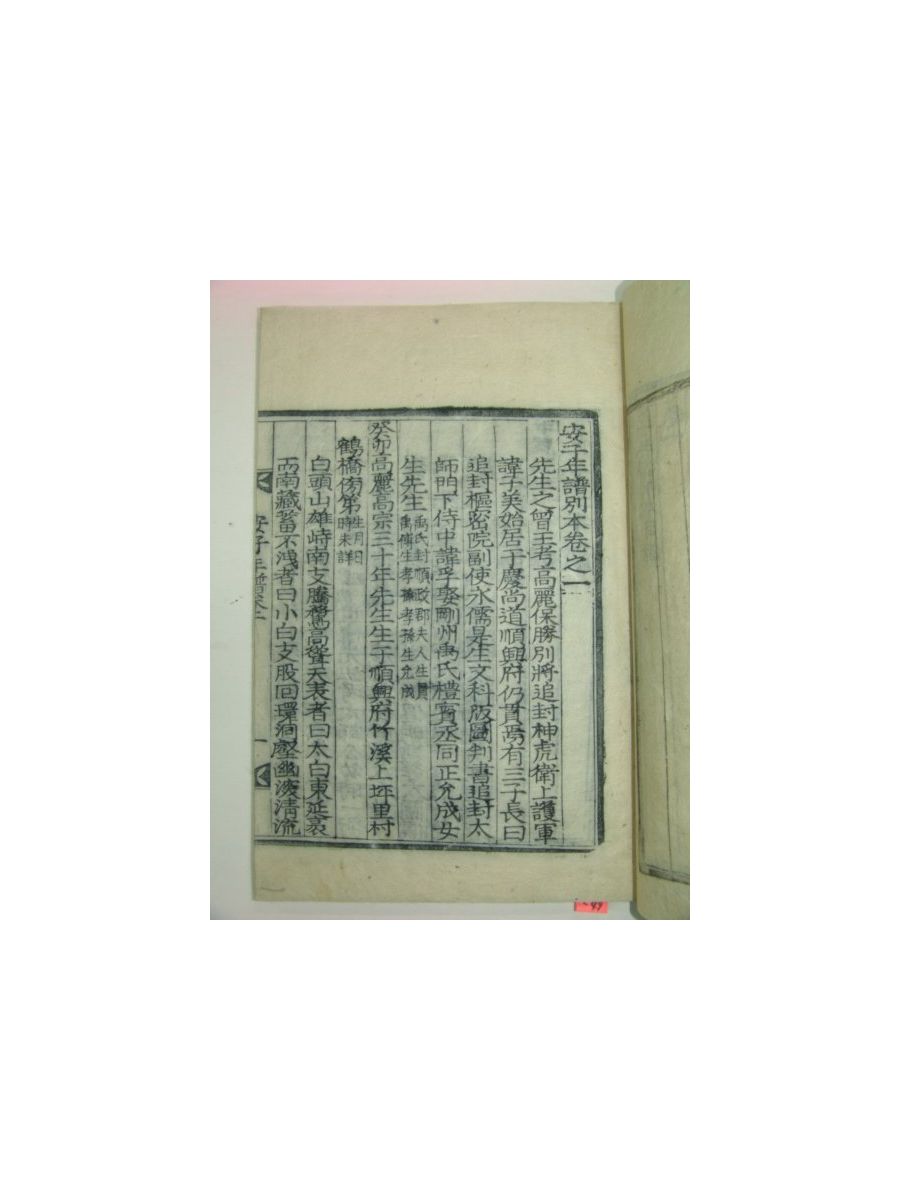 安子年譜別本卷之一
先生之曾王考高麗保勝別將追封神虎衛上護軍
諱子美始居于慶尚道順興府仍貫焉有三子長曰
追封樞密院副使永儒是生文科版圖判書追封太
師門下侍中諱孚娶剛州禹氏禮賓丞同正允成女
生先生禹氏封順政郡夫人生員
禹傅生孝孫孝孫生允成
癸卯高麗高宗三十年先生生于順興府竹溪上坪里村
鶴橋傍第生月日
時未詳
白頭山雄峙南支騰騖高聳天表者曰太白東延袤
而南藏蓄不洩者曰小白支股回環洞壑幽邃淸流
安子年譜卷之一
一